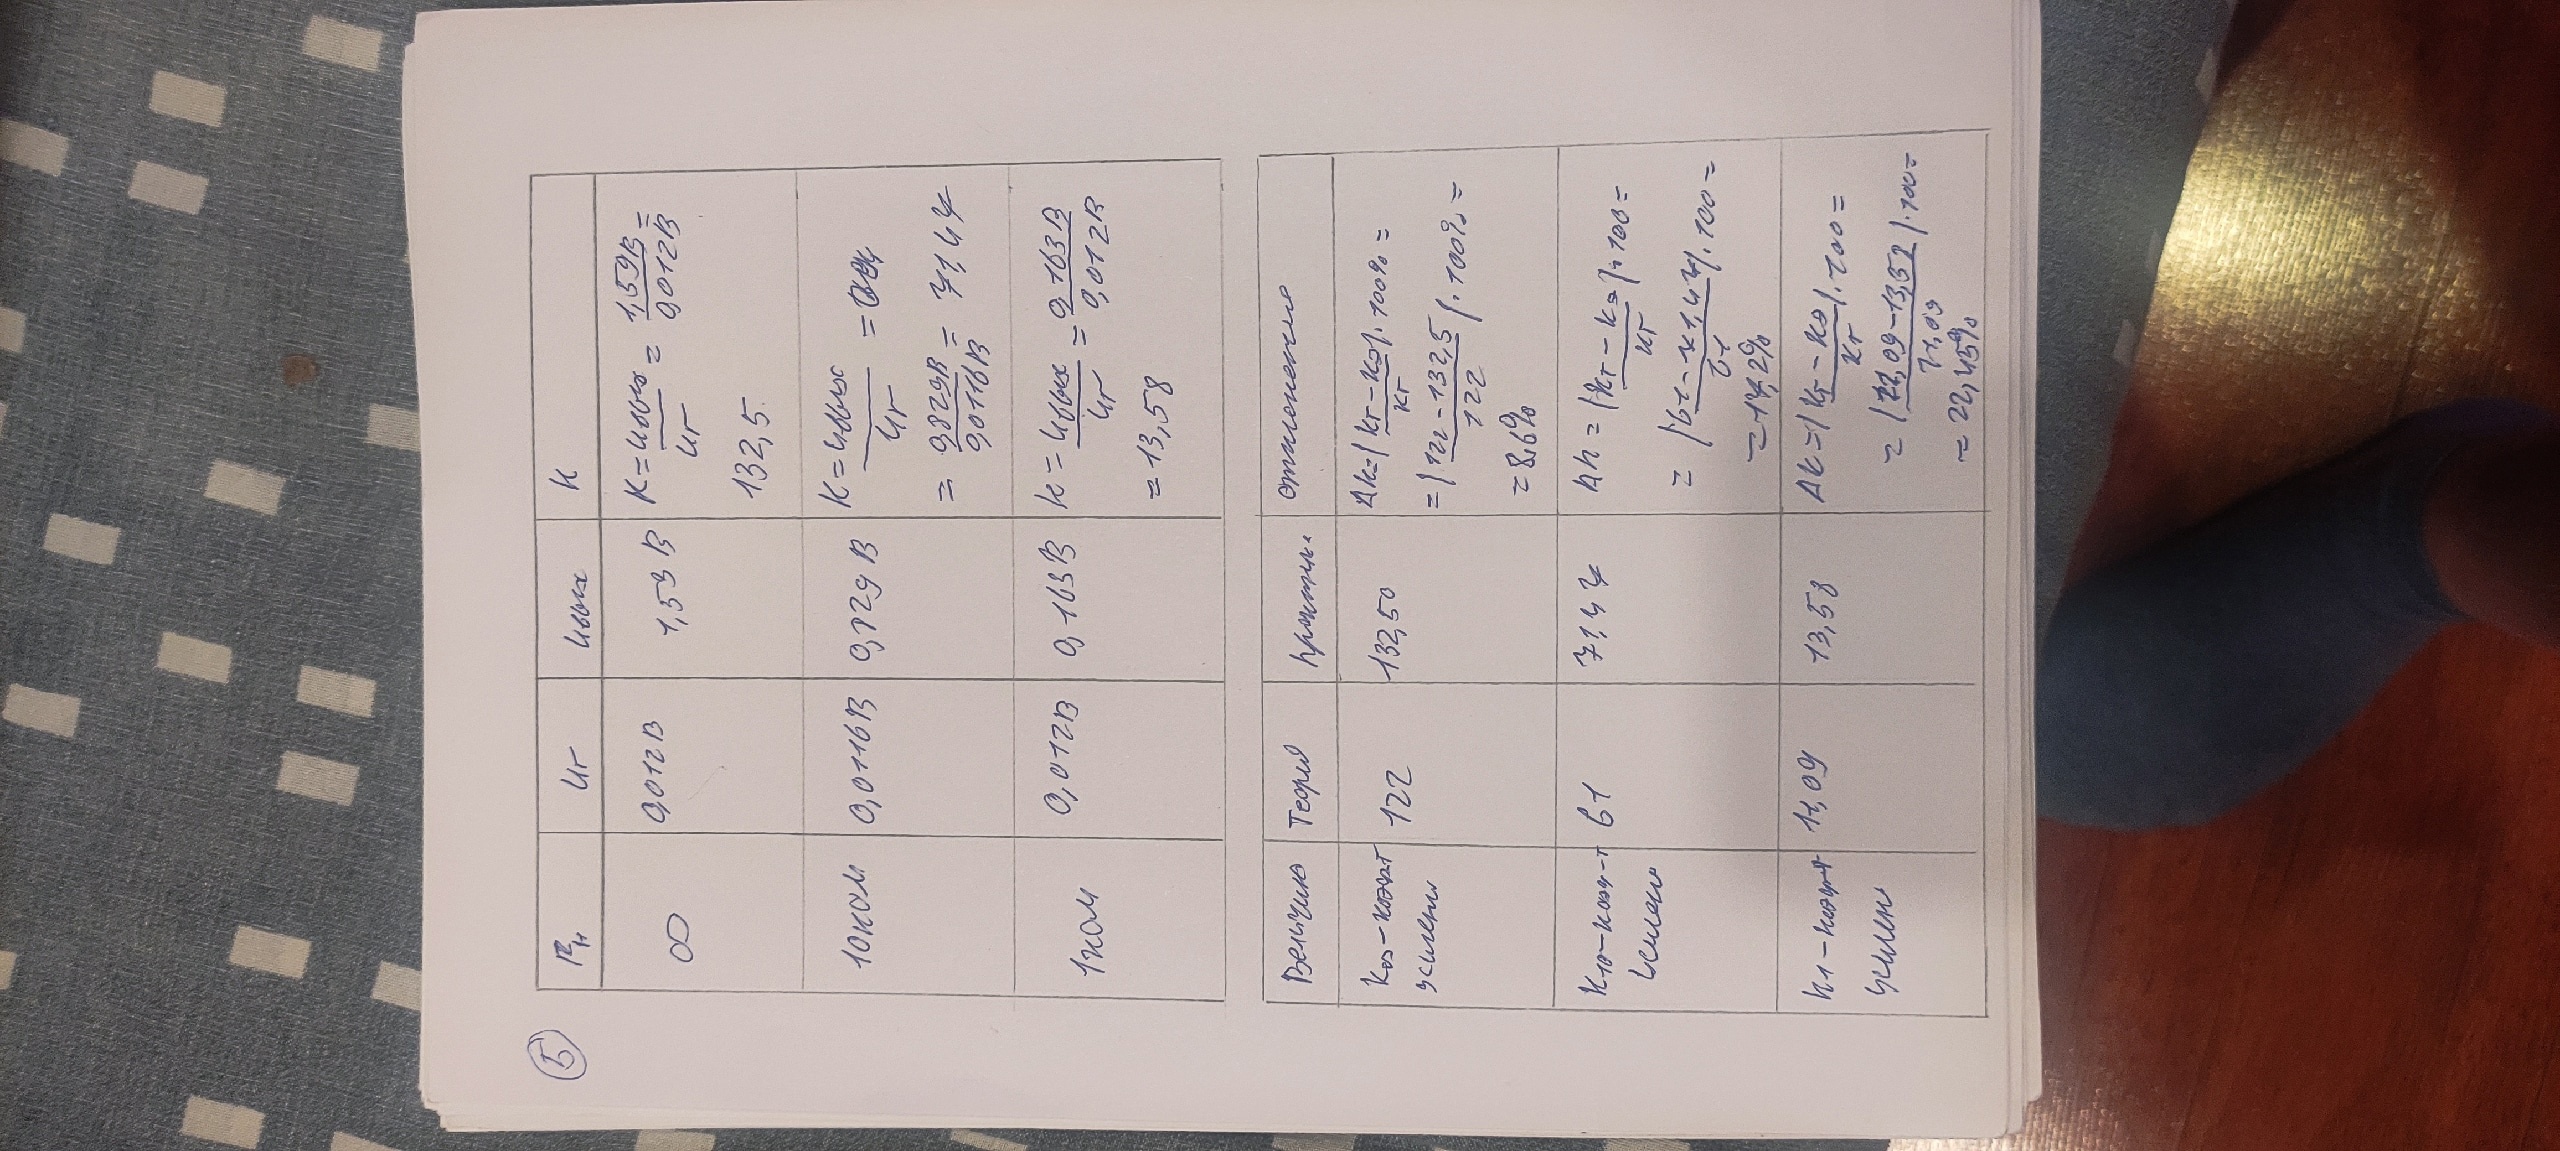 5
Rн Uг Uвых K
∞ 0,012В 1,59 В K = Uвых / Uг = 1,59В / 0,012В =
132,5
10кОм 0,0116В 0,829 В K = Uвых / Uг =
= 0,829В / 0,0116В = 71,47
1кОм 0,012В 0,163В K = Uвых / Uг = 0,163В / 0,012В
= 13,58
Величина Теория практик. отклонение
K∞ - коэфт 122 132,50 ΔK = | Kт - Kэ / Kт | · 100% =
усилени = | 122 - 132,5 / 122 | · 100% =
= 8,6%
K10 - коэф-т 61 71,47 Δh = | Kт - Kэ / Kт | · 100 =
усилени = | 61 - 71,47 / 61 | · 100 =
= 17,2%
K1 - коэф-т 11,09 13,58 ΔK = | Kт - Kэ / Kт | · 100 =
усилен = | 11,09 - 13,58 / 11,09 | · 100 =
= 22,45%